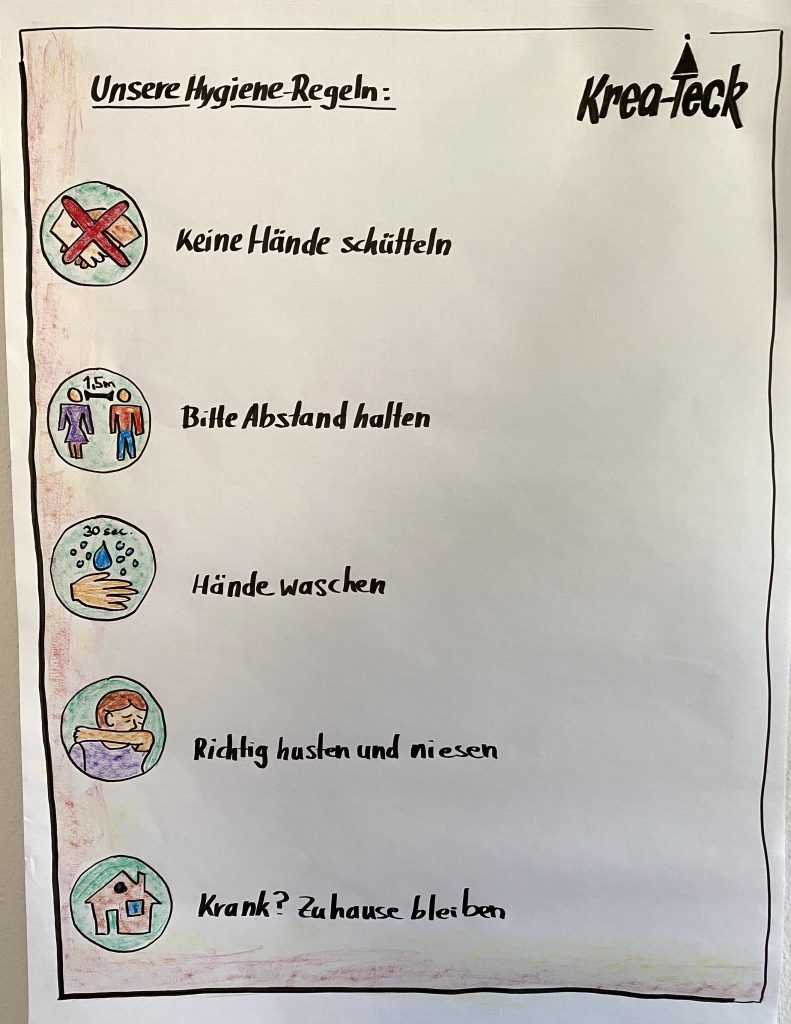 Unsere Hygiene-Regeln:
Krea-Teck
Keine Hände schütteln
1,5m
Bitte Abstand halten
30 sec.
Hände waschen
Richtig husten und niesen
Krank? Zuhause bleiben